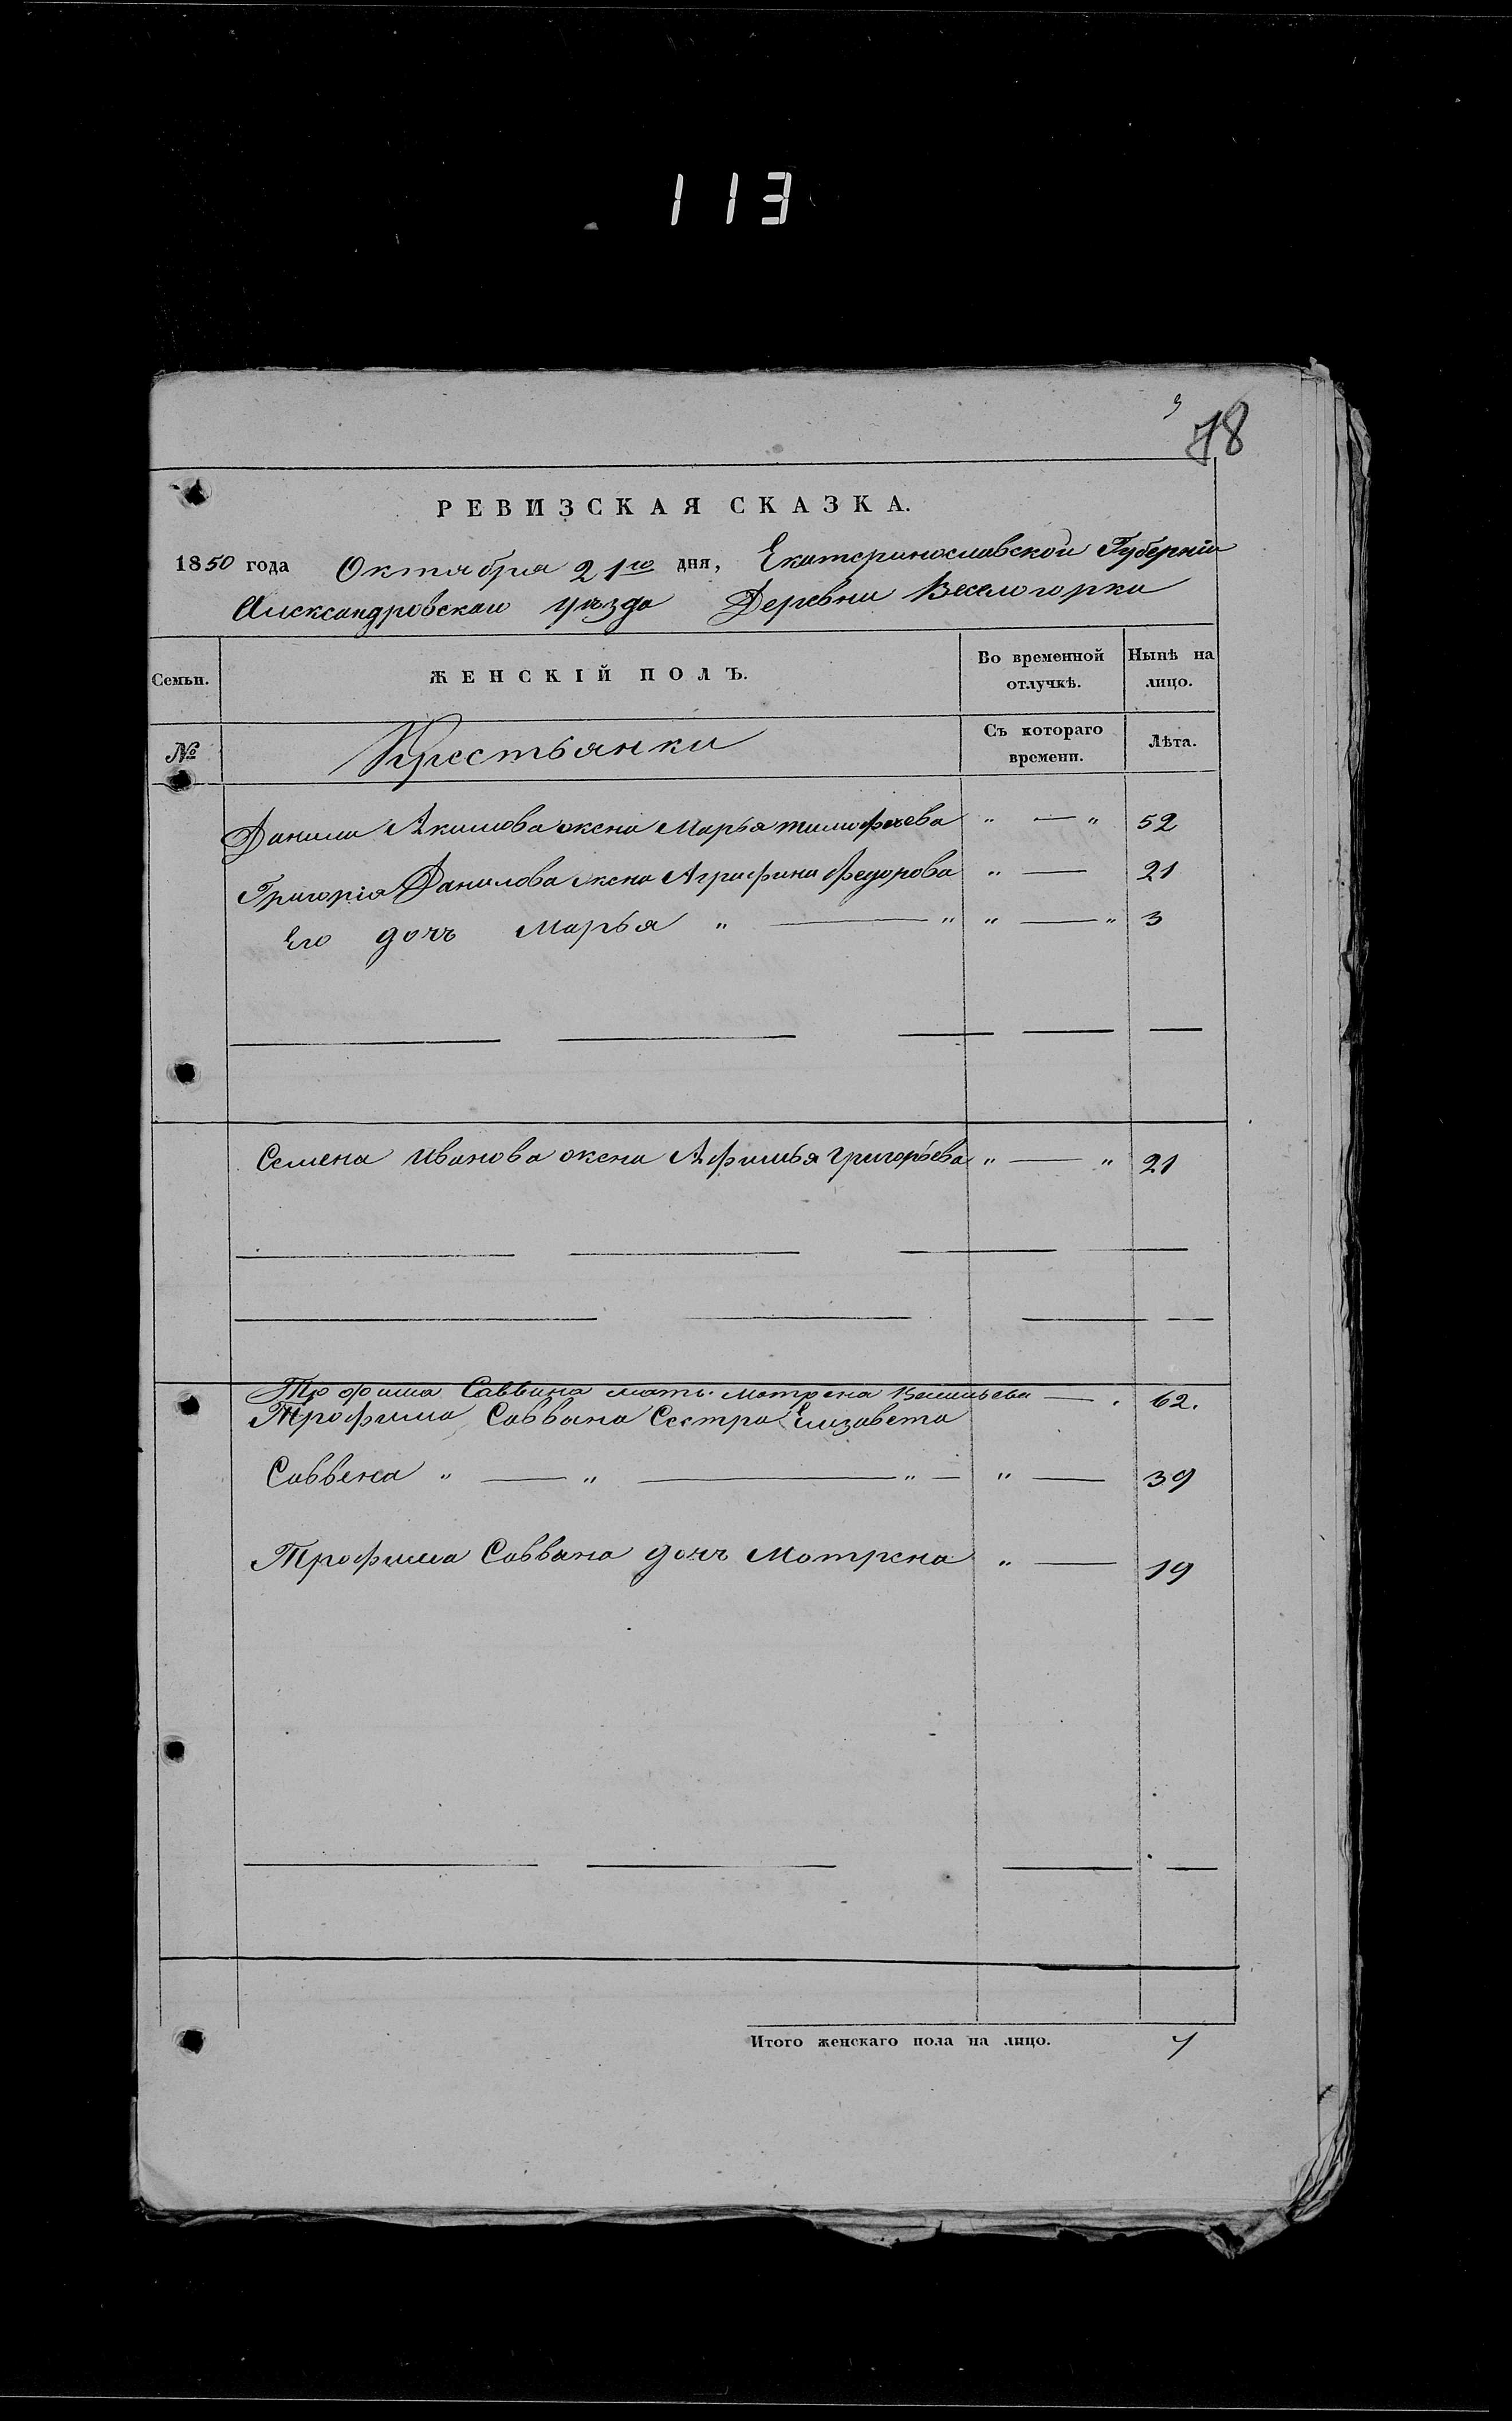 113
78
РЕВИЗСКАЯ СКАЗКА.
1850 года Октября 21го дня, Екатеринославской Губерніи
Александровскаи уѣзда Деревни Веселогорки
Семьи. ЖЕНСКІЙ ПОЛЪ. Во временной отлучкѣ. Нынѣ на лицо.
№ Крестьянки Съ котораго времени. Лѣта.
Данила Акимова жена Марья тимофѣева " — " 52
Григорія Данилова жена Аграфина Федорова " — 21
Его дочь Марья " — " " — " 3
Семена Иванова жена Афимья Григорьева " — " 21
Трофима Саввина мать. Мотрена Васильева — . 62.
Трофима Саввана Сестра Елизавета
Саввена " — " — " — " — 39
Трофима Саввана дочь Мотрена " — 19
Итого женскаго пола на лицо. 7